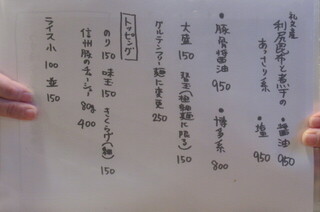 礼文産
利尻昆布と煮干の
あっさり系
・醤油 950
・塩 950
・豚骨醤油 950
・博多系 800
大盛 150 替玉(極細麺に限る) 150
グルテンフリー麺に変更 250
トッピング
のり 150 味玉 150 きくらげ(細) 150
信州豚のチャーシュー 80g 400
ライス 小 100 並 150